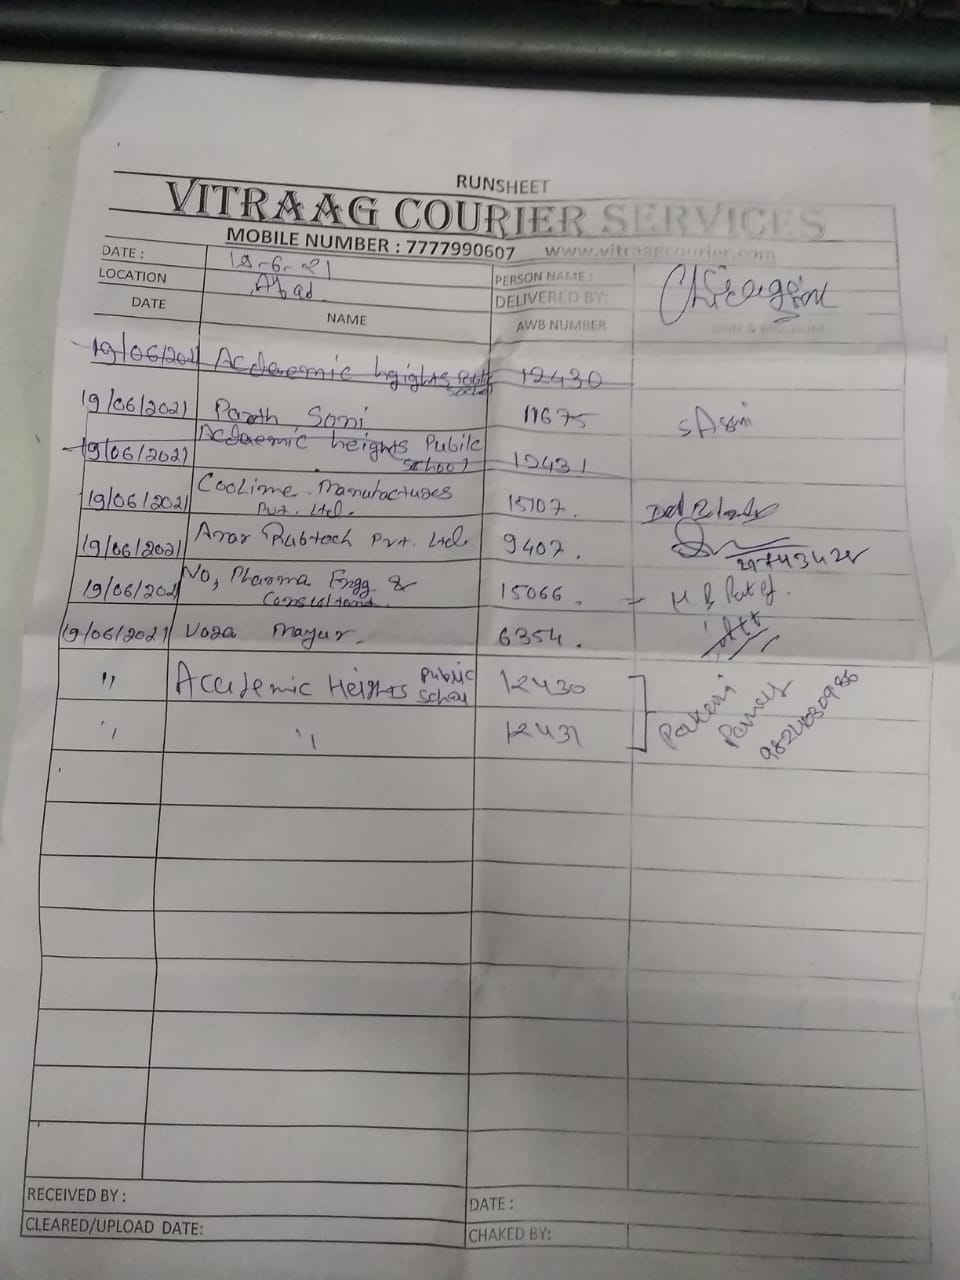 RUNSHEET
VITRAAG COURIER SERVICES
MOBILE NUMBER : 7777990607 www.vitraagcourier.com
DATE : 18-6-21 PERSON NAME :
LOCATION A'bad DELIVERED BY:
DATE NAME AWB NUMBER SIGN & MOB NUM
19/06/2021 Acdaemic heights Public School 12430
19/06/2021 Parth Soni 11675
19/06/2021 Acdaemic heights Public School 12431
19/06/2021 Coolime Manufactures Pvt. Ltd. 15707.
19/06/2021 Rubtech Pvt. Ltd. 9407.
19/06/2021 No, Pharma Engg & Consultant 15066.
19/06/2021 Vora Mayur. 6354.
" Academic Heights Public School 12430
" " 12431 9824030986
RECEIVED BY : DATE :
CLEARED/UPLOAD DATE: CHAKED BY: